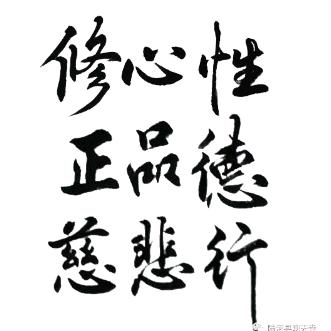 修心性
正品德
慈悲行